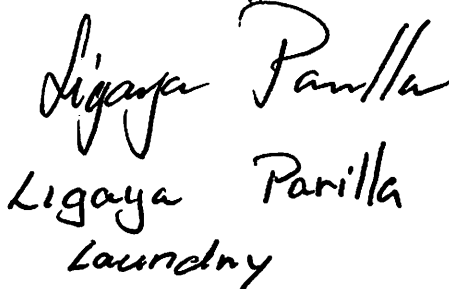 Ligaya Parilla
Ligaya Parilla
Laundry